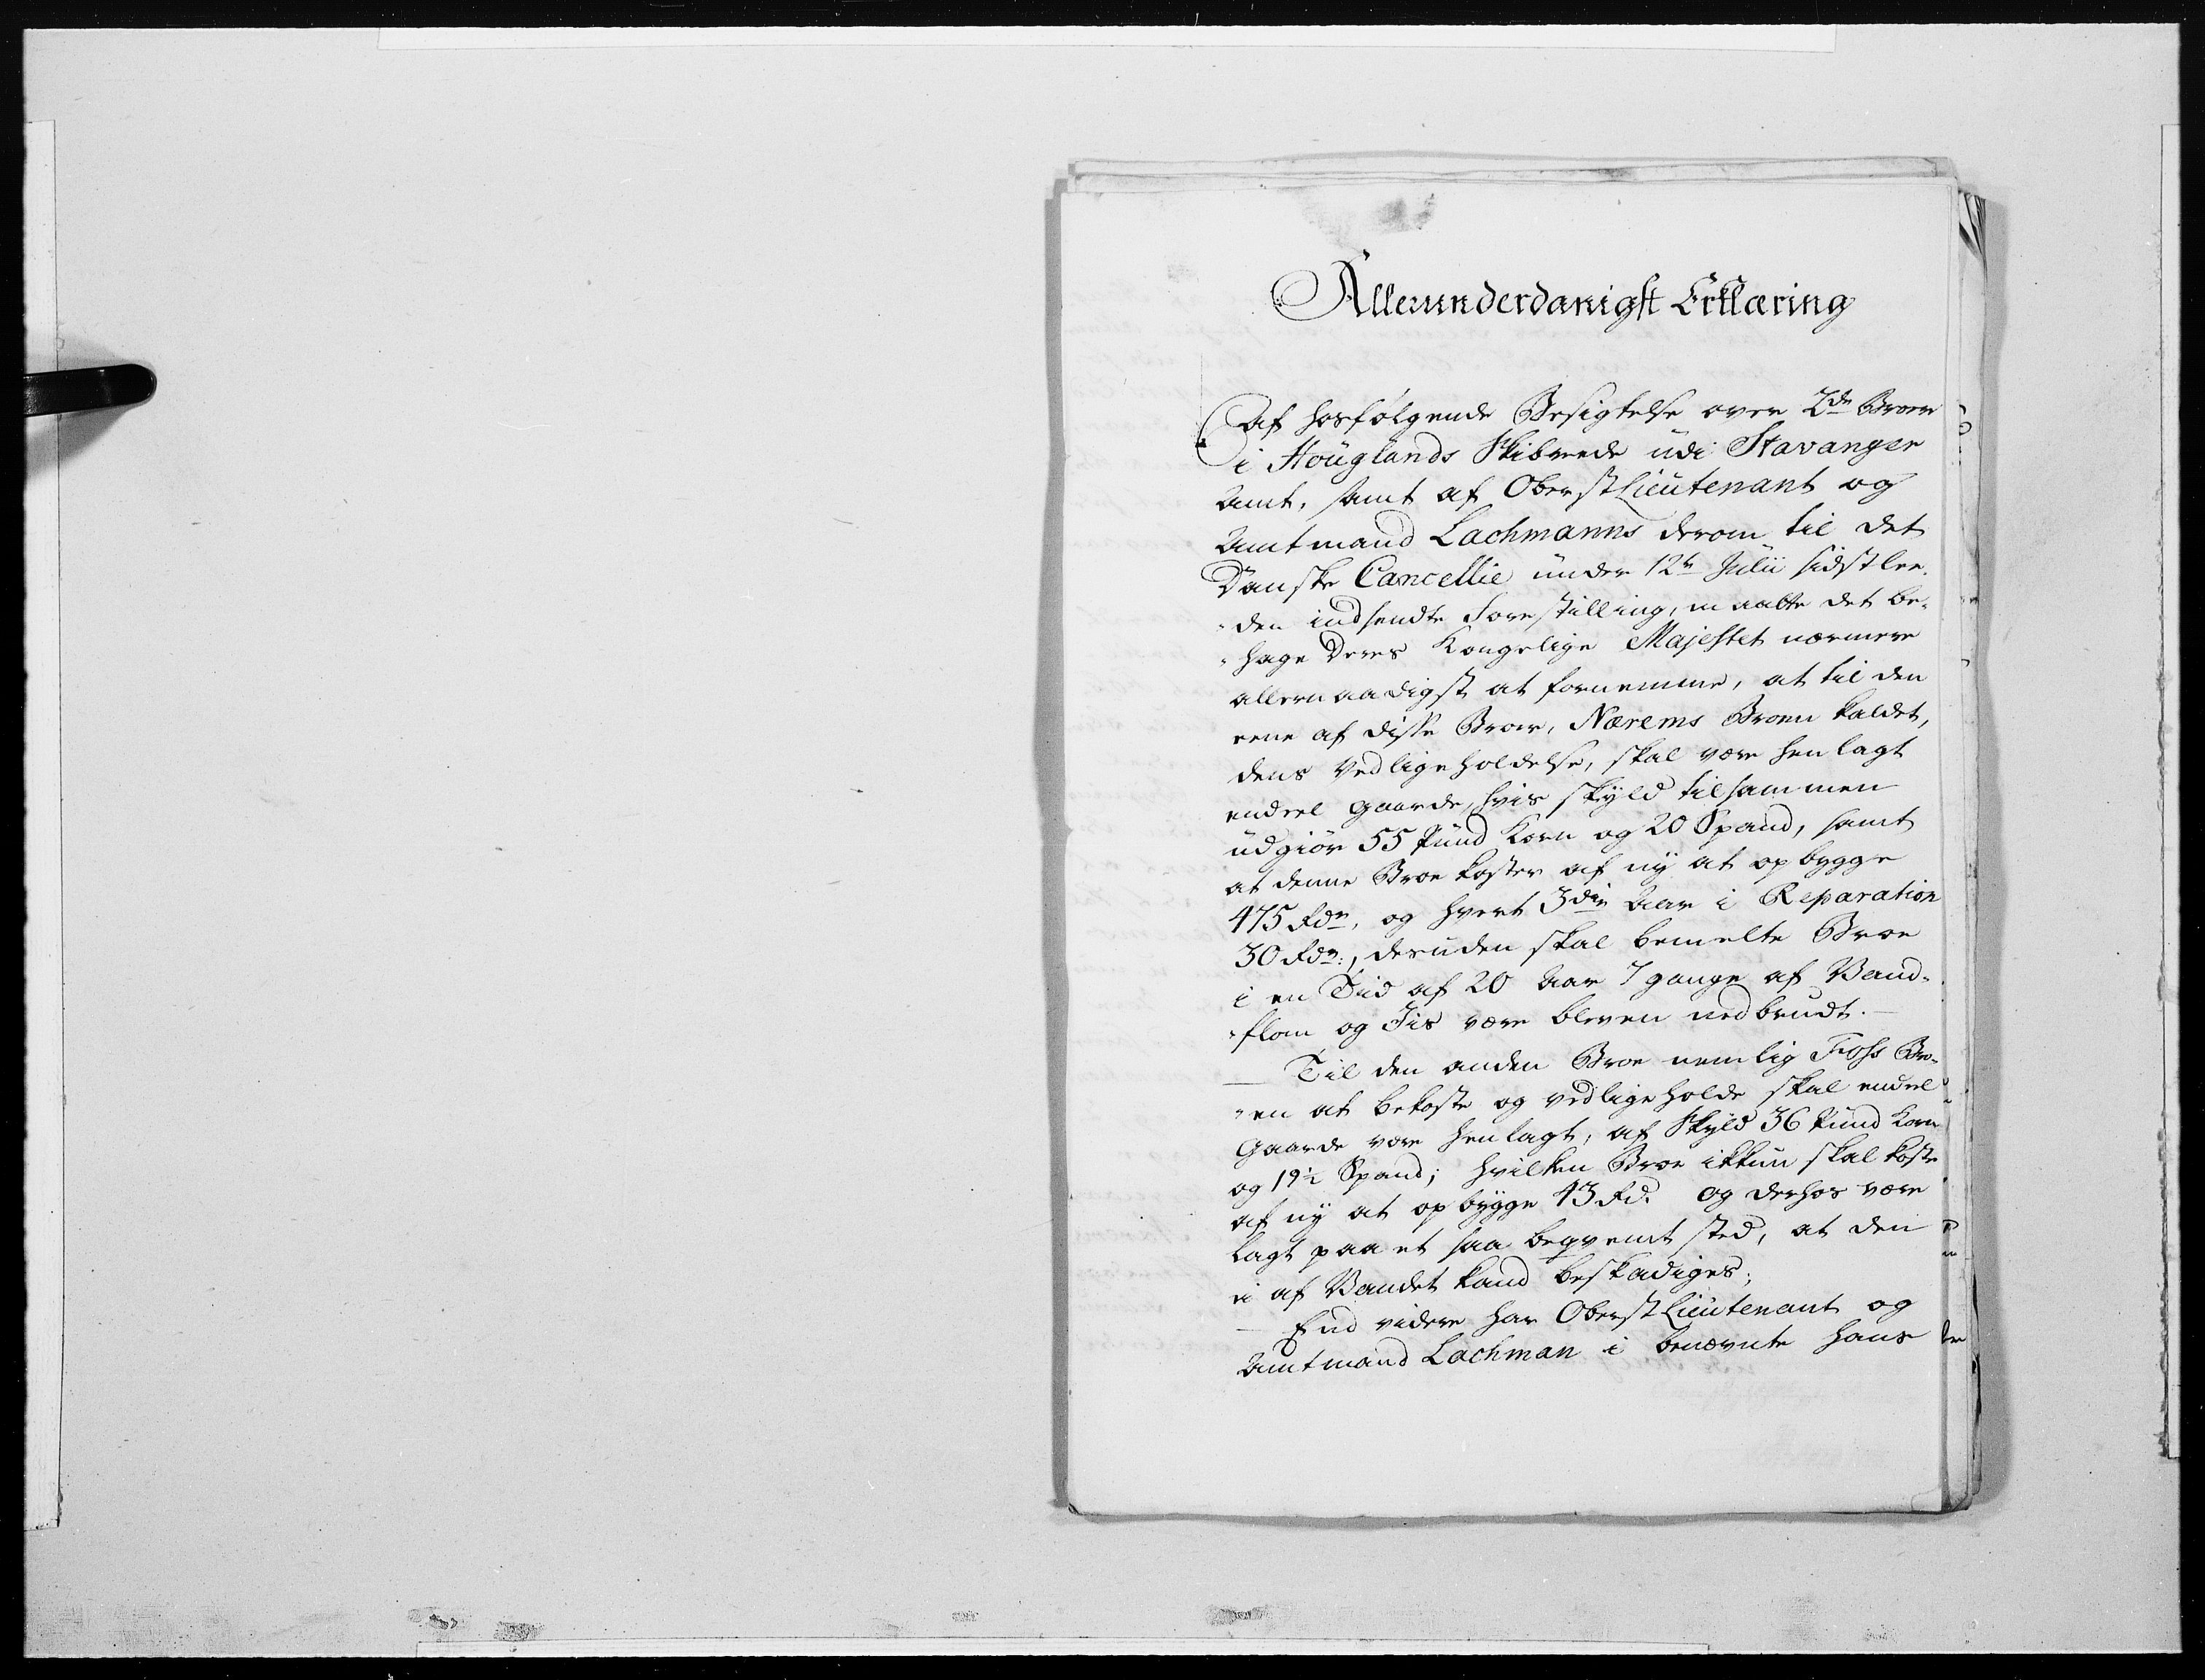 Allerunderdanigst Erklæring
Af hosfølgende Besigtelse over 2de Broer
i Houglands Skibrede udi Stavanger
Amt, samt af OberstLieutenant og
Amtmand Lachmanns derom til det
Danske Cancellie under 12te Julii sidstlee¬
„den indsendte Forestilling, maatte det be¬
„hage Deres Kongelige Majestet nærmere
allernaadigst at fornemme, at til den
eene af disse Broer, Nærems Broen kaldet,
dens vedligeholdelse, skal være henlagt
endeel gaarde, hvis skyld tilsammen
udgiør 55 Pund Korn og 20 Spand, samt
at denne Broe koster af ny at opbygge
475 Rdr, og hvert 3die Aar i Reparation
30 Rdr:, desuden skal bemelte Broe
i en Tid af 20 Aar 7 gange af Vand¬
„flom og Jis være bleven nedbrudt.
Til den anden Broe nemlig Foss Bro¬
„en at bekoste og vedligeholde skal endeel
Gaarde være henlagt, af Skyld 36 Pund Korn
og 19½ Spand; hvilken Broe ikkun skal koste
af ny at opbygge 43 Rd. og derhos være
lagt paa et saa beqvemt sted, at den
ei af Vandet kand beskadiges;
End videre har OberstLieutenant og
Amtmand Lachman i benævnte hans